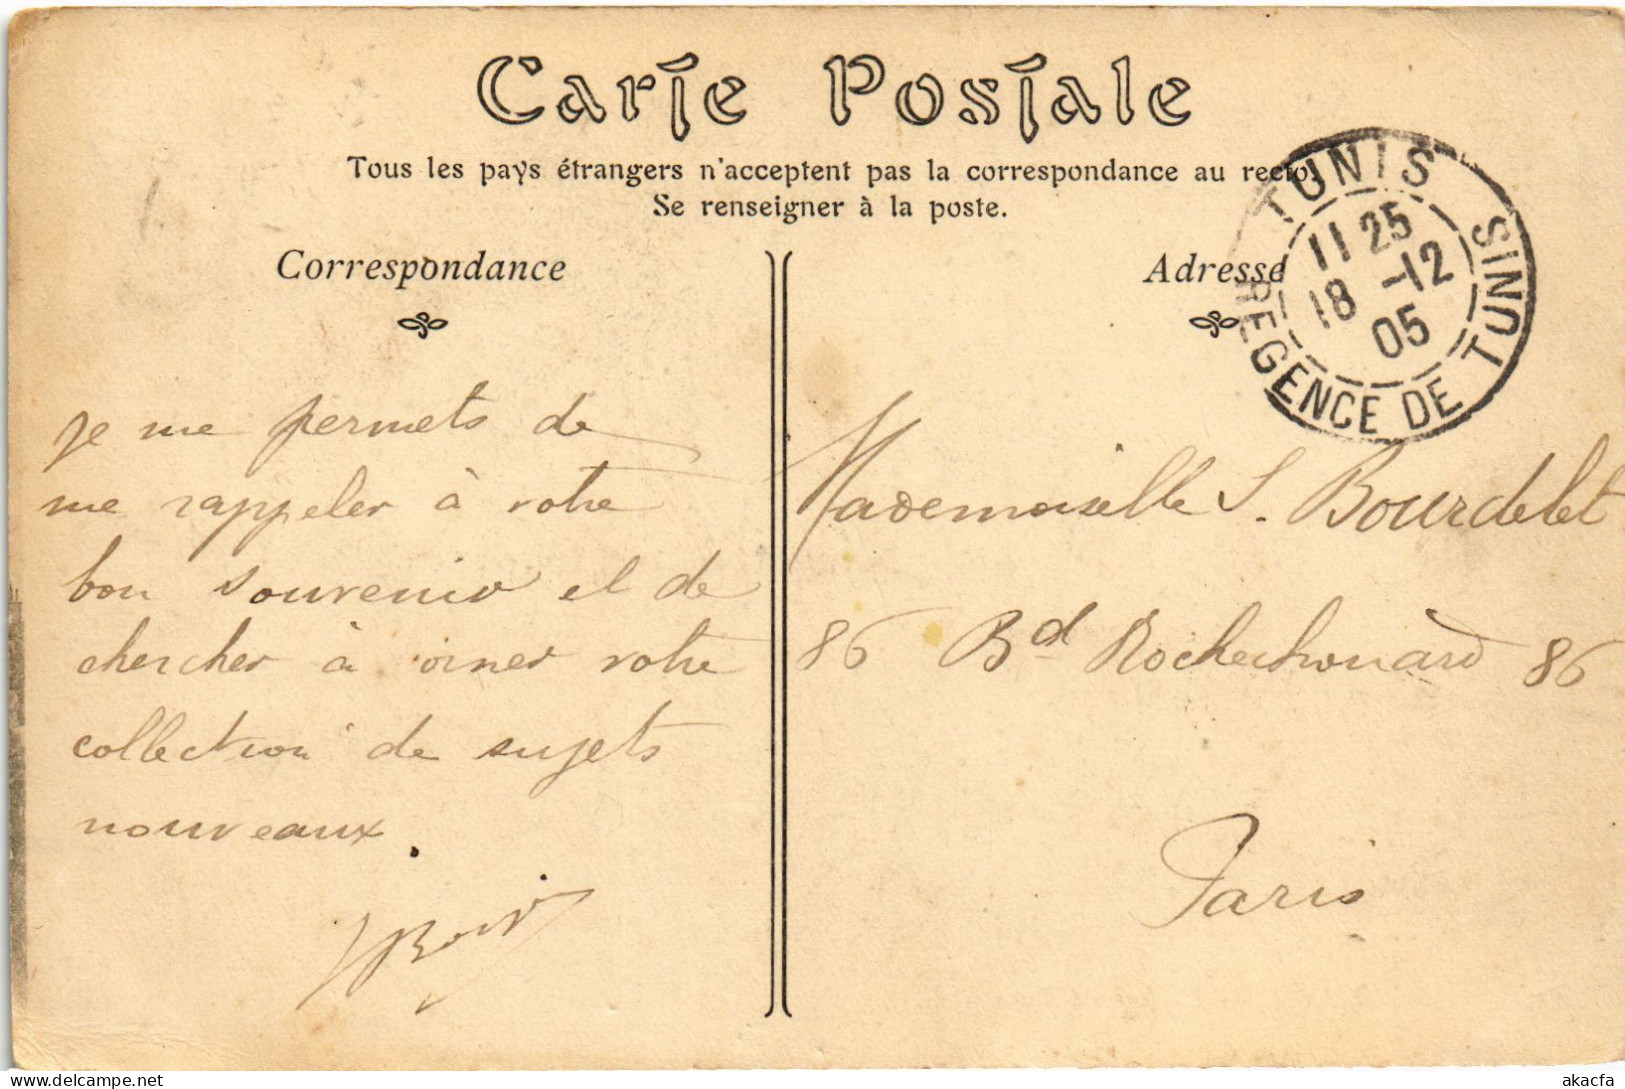 Carte Postale
Tous les pays étrangers n'acceptent pas la correspondance au recto.
Se renseigner à la poste.
Correspondance
Adresse
TUNIS
11 25
18 -12
05
REGENCE DE TUNIS
je me permets de
me rappeler à votre
bon souvenir et de
chercher à orner votre
collection de sujets
nouveaux.
Mademoiselle S. Bourdelet
86 Bd Rochechouard 86
Paris
akacfa